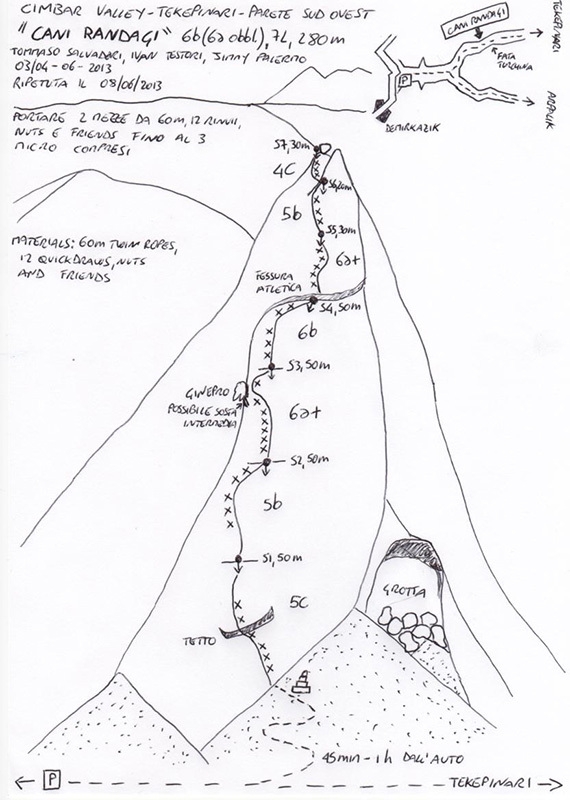 CIMBAR VALLEY-TEKEPINARI-PARETE SUD OVEST
"CANI RANDAGI" 6b(6a obbl), 7L, 280m
TOMMASO SALVADORI, IVAN TESTORI, JIMMY PALERMO
03/04-06-2013
RIPETUTA IL 08/06/2013
PORTARE 2 MEZZE DA 60m, 12 RINVII,
NUTS E FRIENDS FINO AL 3
MICRO COMPRESI
MATERIALS: 60m TWIN ROPES,
12 QUICKDRAWS, NUTS
AND FRIENDS
CANI RANDAGI
TEKEPINARI
FATA
TURCHINA
P
DEMIRKAZIK
S7, 30m
4C
S6, 20m
5b
S5, 30m
6a+
FESSURA
ATLETICA
S4, 50m
6b
S3, 50m
GINEPRO
POSSIBILE SOSTA
INTERMEDIA
6a+
S2, 50m
5b
S1, 50m
5C
TETTO
GROTTA
45min-1h DALL'AUTO
P
TEKEPINARI